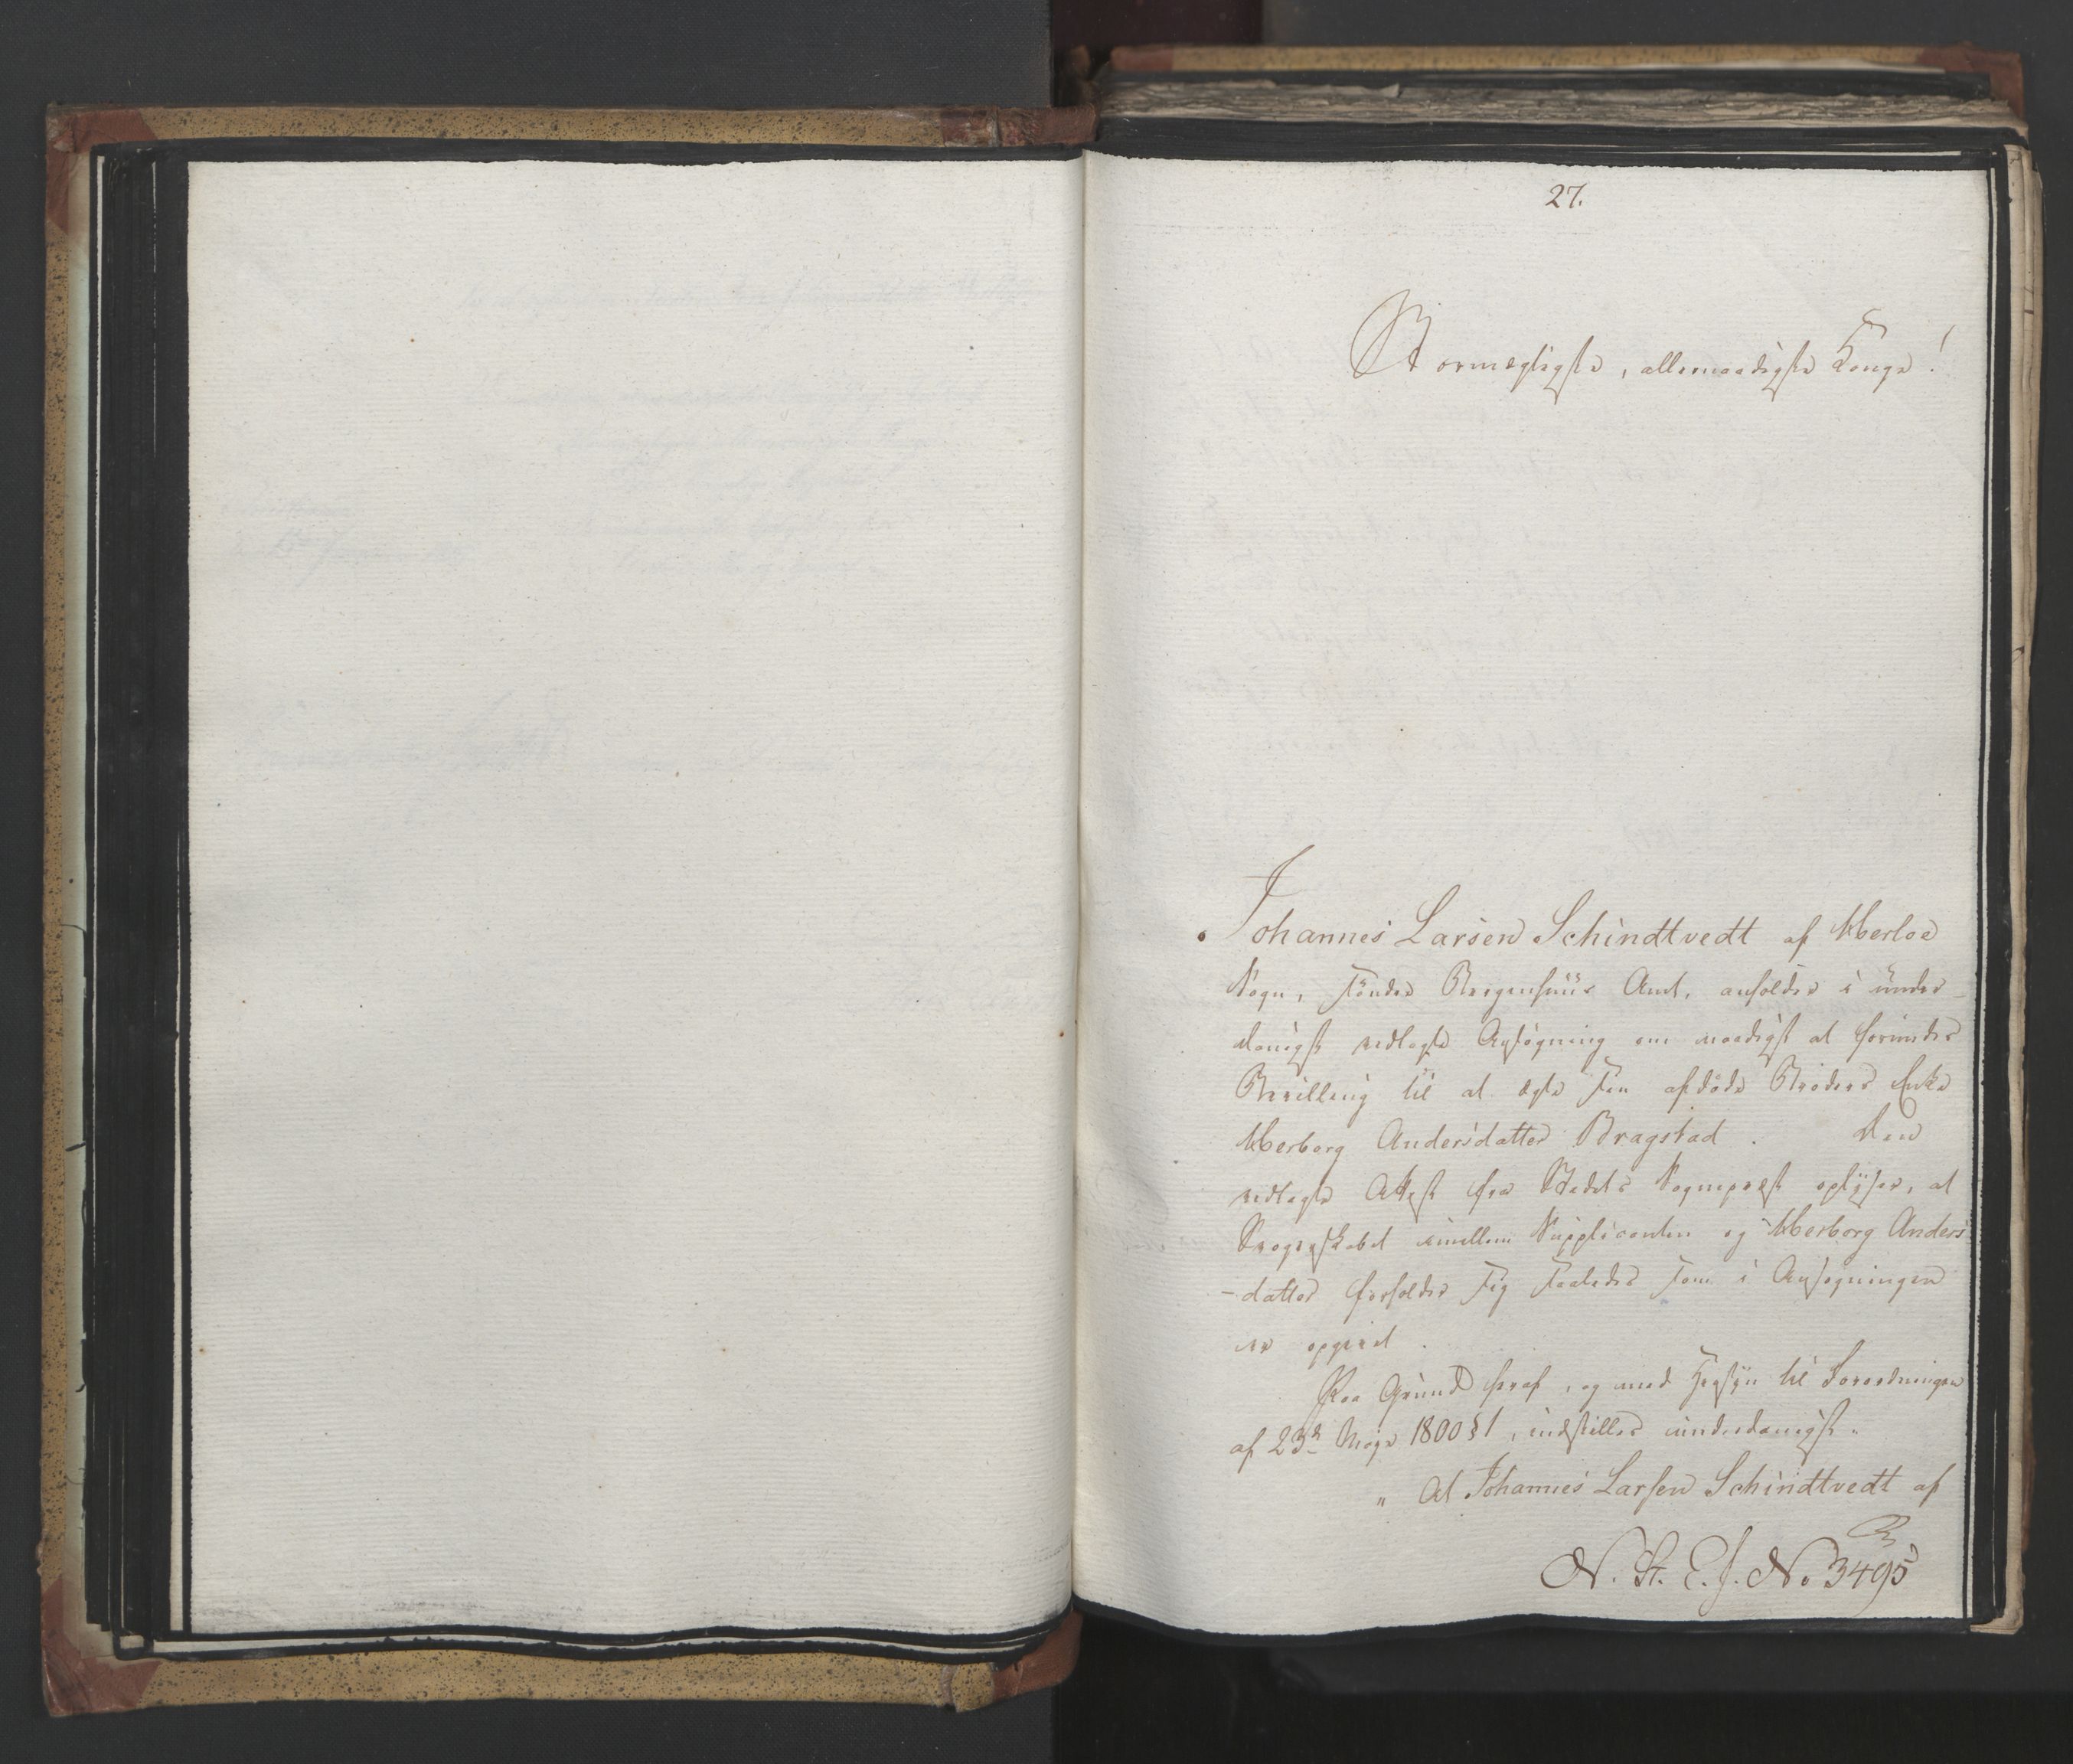 27.
Stormægtigste, allernaadigste Konge!
Johannes Larsen Schindtvedt af Ulversøe
Sogn, Søndre Bergenhuus Amt, anholder i under-
danigst vedlagte Ansøgning om naadigst at forundes
Bevilling til at ægte sin afdøde Broders Enke
Herborg Andersdatter Bragstad. Den
vedlagte Attest fra Stedets Sognepræst oplyser, at
Svogerskabet imellem Supplicanten og Herborg Anders
-datter forholder sig saaledes som i Ansøgningen
er opgivet.
Paa Grund heraf, og med Hensyn til Forordningen
af 23de Maje 1800 § 1, indstilles underdanigst:
" At Johannes Larsen Schindtvedt af
N. St. E. J. No 3495